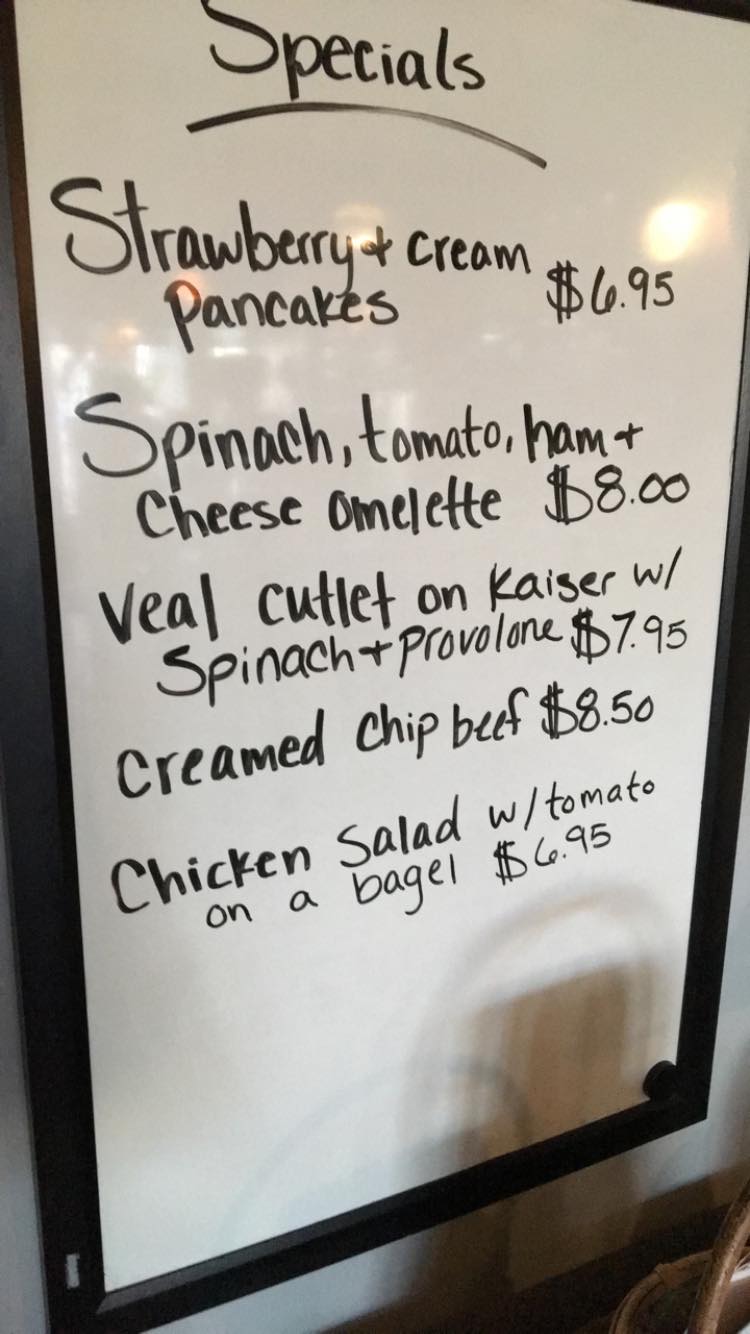 Specials
Strawberry + cream
pancakes $6.95
Spinach, tomato, ham +
Cheese omelette $8.00
Veal cutlet on Kaiser w/
Spinach + provolone $7.95
Creamed chip beef $8.50
Chicken Salad w/ tomato
on a bagel $6.95